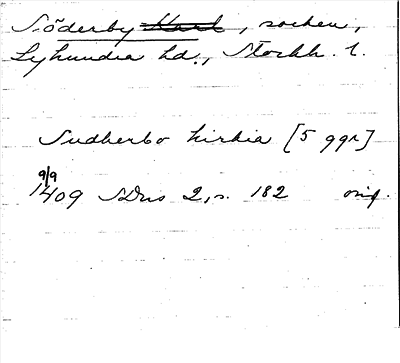 Söderby Karl, socken,
Lyhundra hd., Stockh. l.
Sudherbo kirkia [5 ggr]
9/9
1409 SDns 2, s. 182 orig.